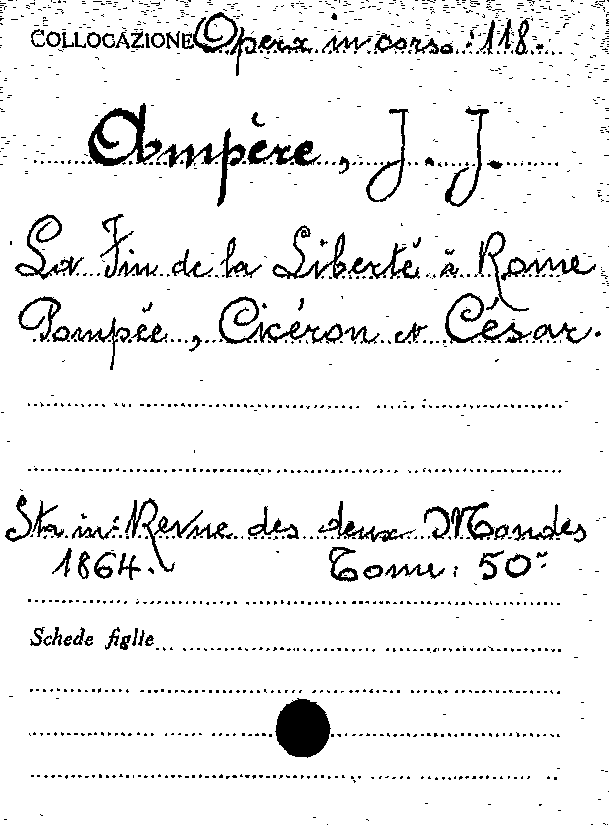 COLLOCAZIONE Opera in corso: 118.
Ampère, J. J.
La Fin de la Liberté à Rome
Pompée, Cicéron et César.
Sta in: Revue des deux Mondes
1864. Tome: 50°
Schede figlie